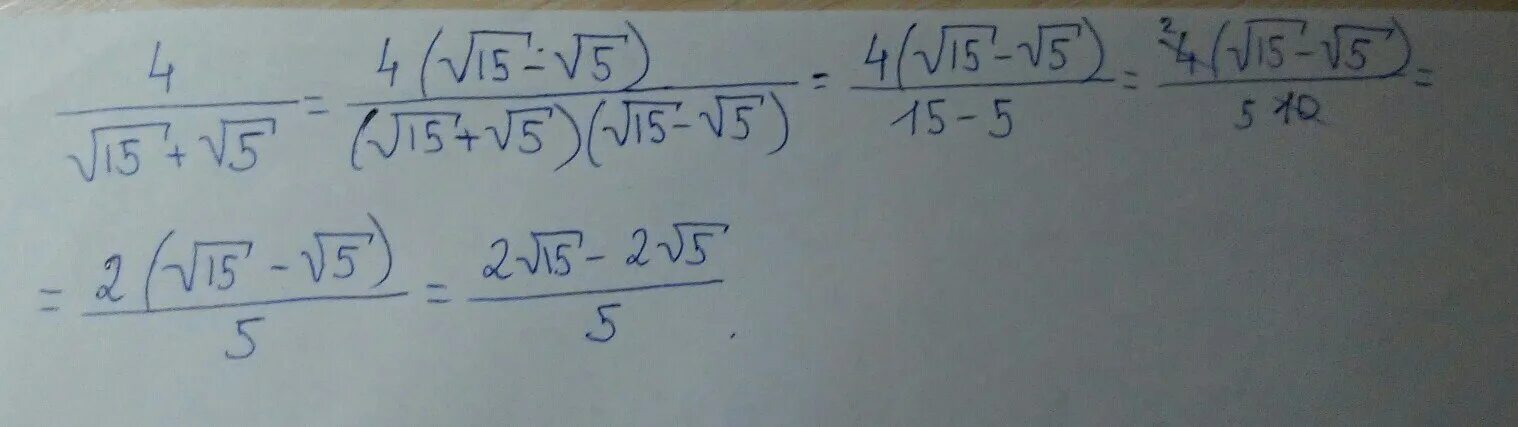 4/(√15 + √5) = 4(√15 - √5)/((√15 + √5)(√15 - √5)) = 4(√15 - √5)/(15 - 5) = ²4(√15 - √5)/(5 10) =
= 2(√15 - √5)/5 = (2√15 - 2√5)/5.